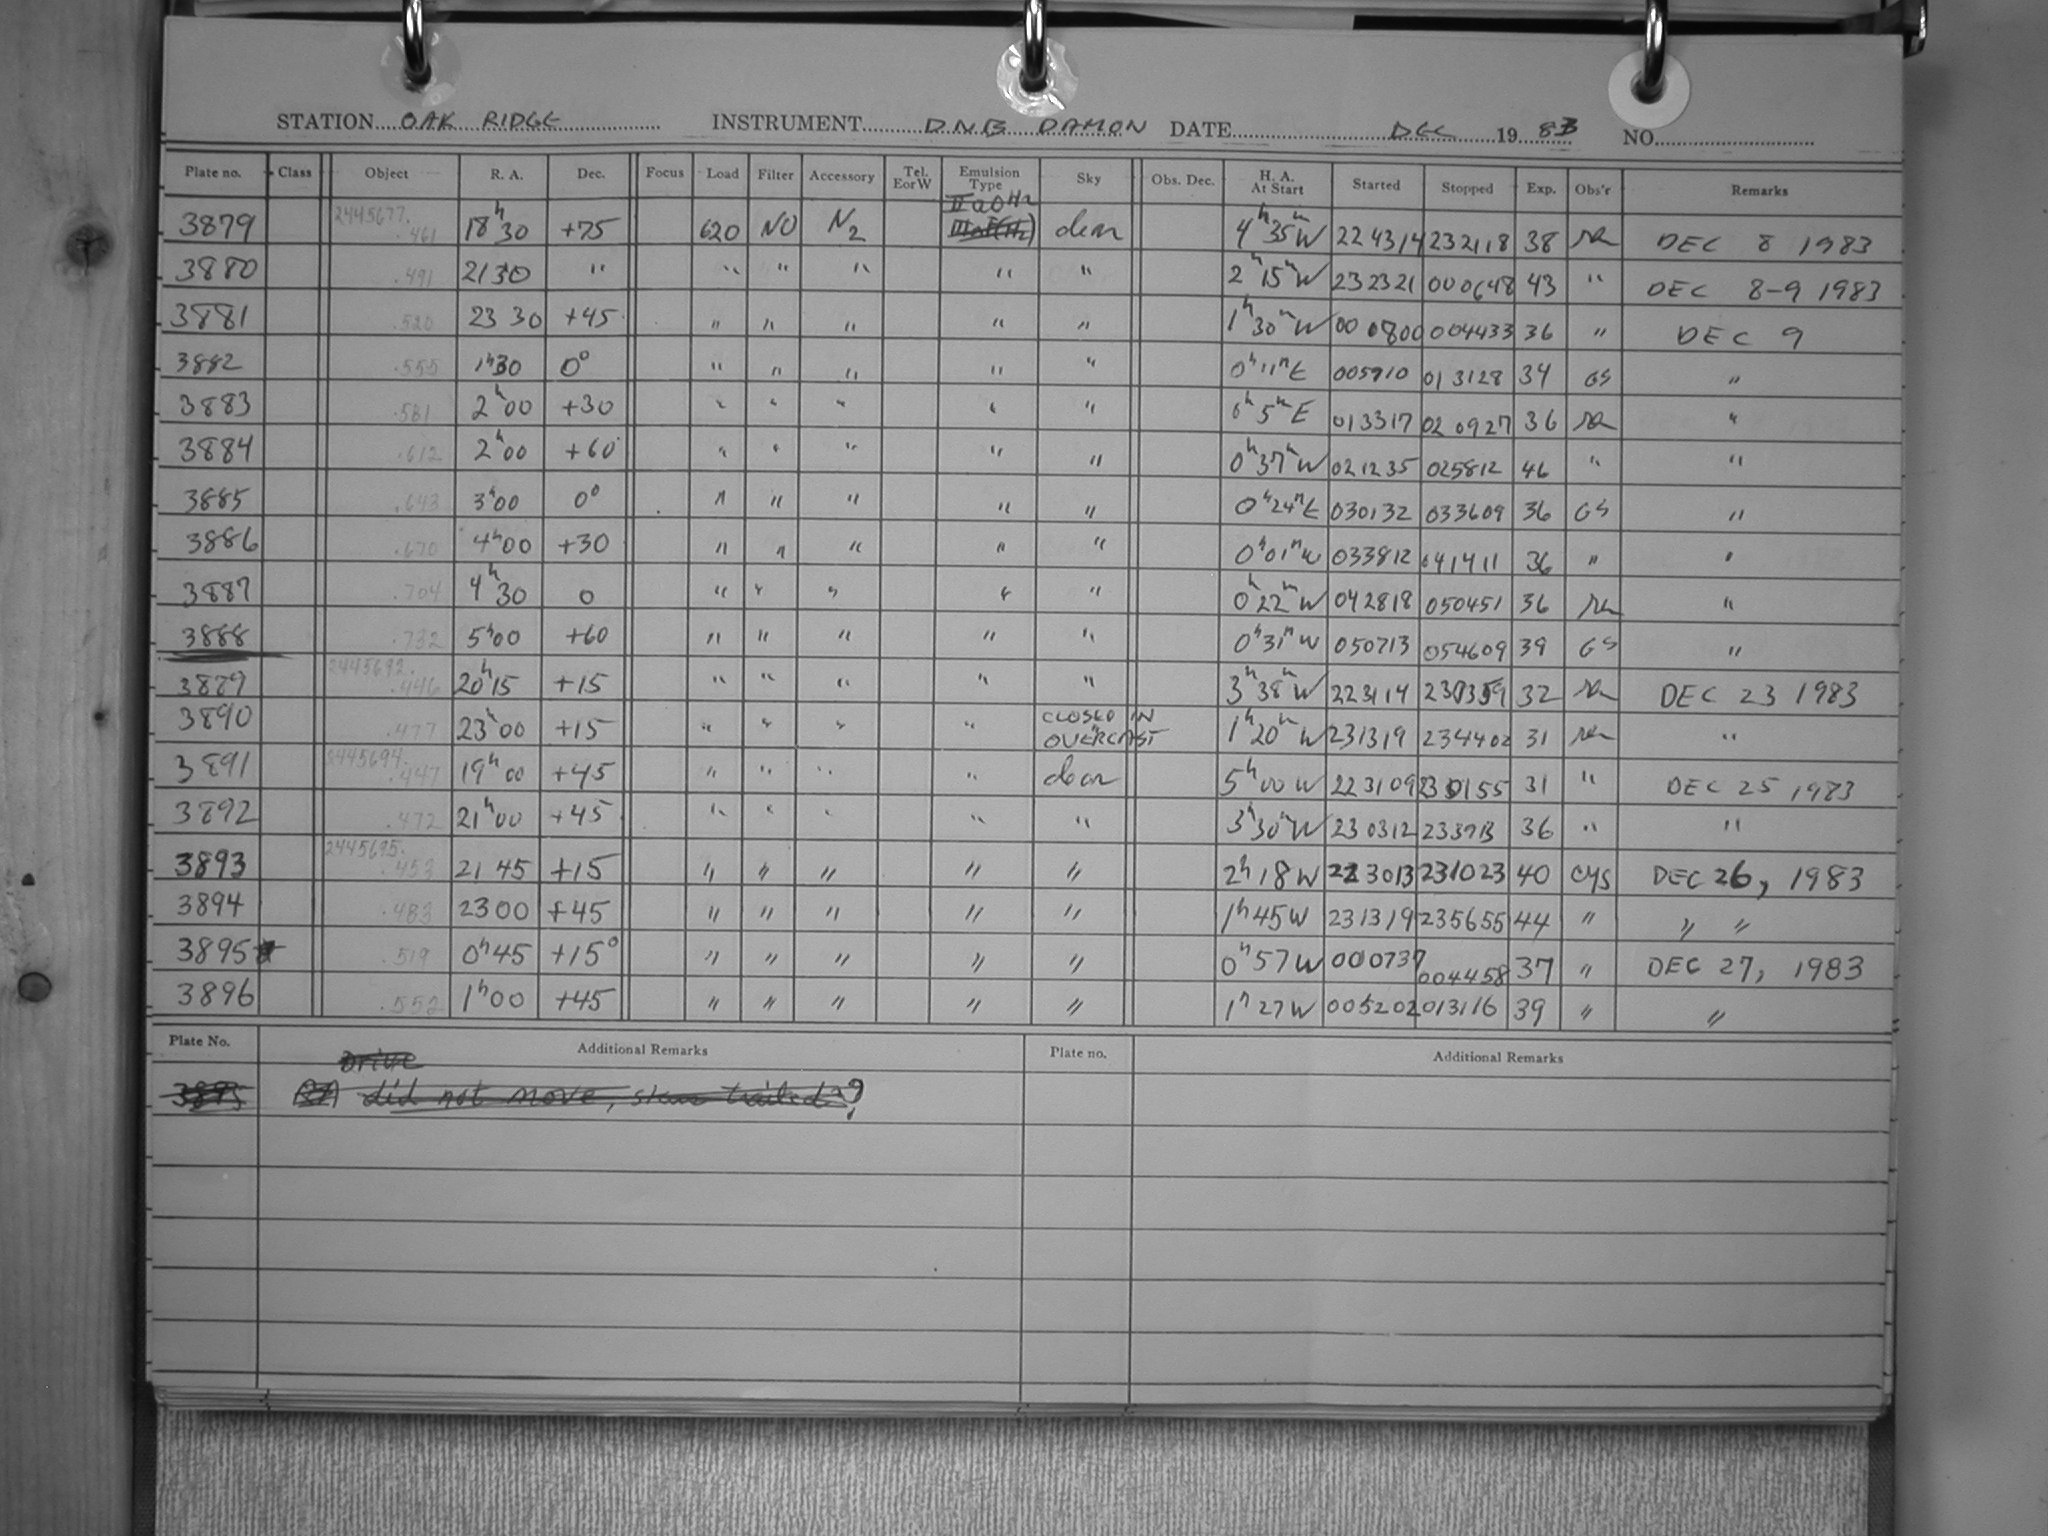 STATION OAK RIDGE INSTRUMENT D.N.B DAMON DATE DEC 1983 NO.
Plate no. Class Object R. A. Dec. Focus Load Filter Accessory Tel. E or W Emulsion Type Sky Obs. Dec. H. A. At Start Started Stopped Exp. Obs'r Remarks
2445677.
3879 .461 18h30 +75 620 NO N2 IIaO H2 clear 4h35mW 224314 232118 38 DEC 8 1983
3880 .491 2130 " " " " " " 2h15mW 232321 000648 43 " DEC 8-9 1983
3881 .520 23 30 +45 " " " " " 1h30mW 000800 004433 36 " DEC 9
3882 .555 1h30 0° " " " " " 0h11mE 005710 013128 34 GS "
3883 .581 2h00 +30 " " " " " 0h5mE 013317 020927 36 "
3884 .612 2h00 +60 " " " " " 0h37mW 021235 025812 46 " "
3885 .643 3h00 0° " " " " " 0h24mE 030132 033609 36 GS "
3886 .670 4h00 +30 " " " " " 0h01mW 033812 041411 36 " "
3887 .704 4h30 0 " " " " " 0h22mW 042818 050451 36 "
3888 .732 5h00 +60 " " " " " 0h31mW 050713 054609 39 GS "
2445692.
3889 .446 20h15 +15 " " " " " 3h38mW 223114 32 DEC 23 1983
3890 .477 23h00 +15 " " " " CLOSED IN OVERCAST 1h20mW 231319 234402 31 "
2445694.
3891 .447 19h00 +45 " " " " clear 5h00W 223109 230155 31 " DEC 25 1983
3892 .472 21h00 +45 " " " " " 3h30mW 230312 36 " "
2445695.
3893 .453 21 45 +15 " " " " " 2h18W 223013 231023 40 CYS DEC 26, 1983
3894 .483 2300 +45 " " " " " 1h45W 231319 235655 44 " " "
3895* .519 0h45 +15° " " " " " 0h57W 000737 004458 37 " DEC 27, 1983
3896 .552 1h00 +45 " " " " " 1h27W 005202 013116 39 " "
Plate No. Additional Remarks Plate no. Additional Remarks
Drive
3895 RA did not move, stars trailed?